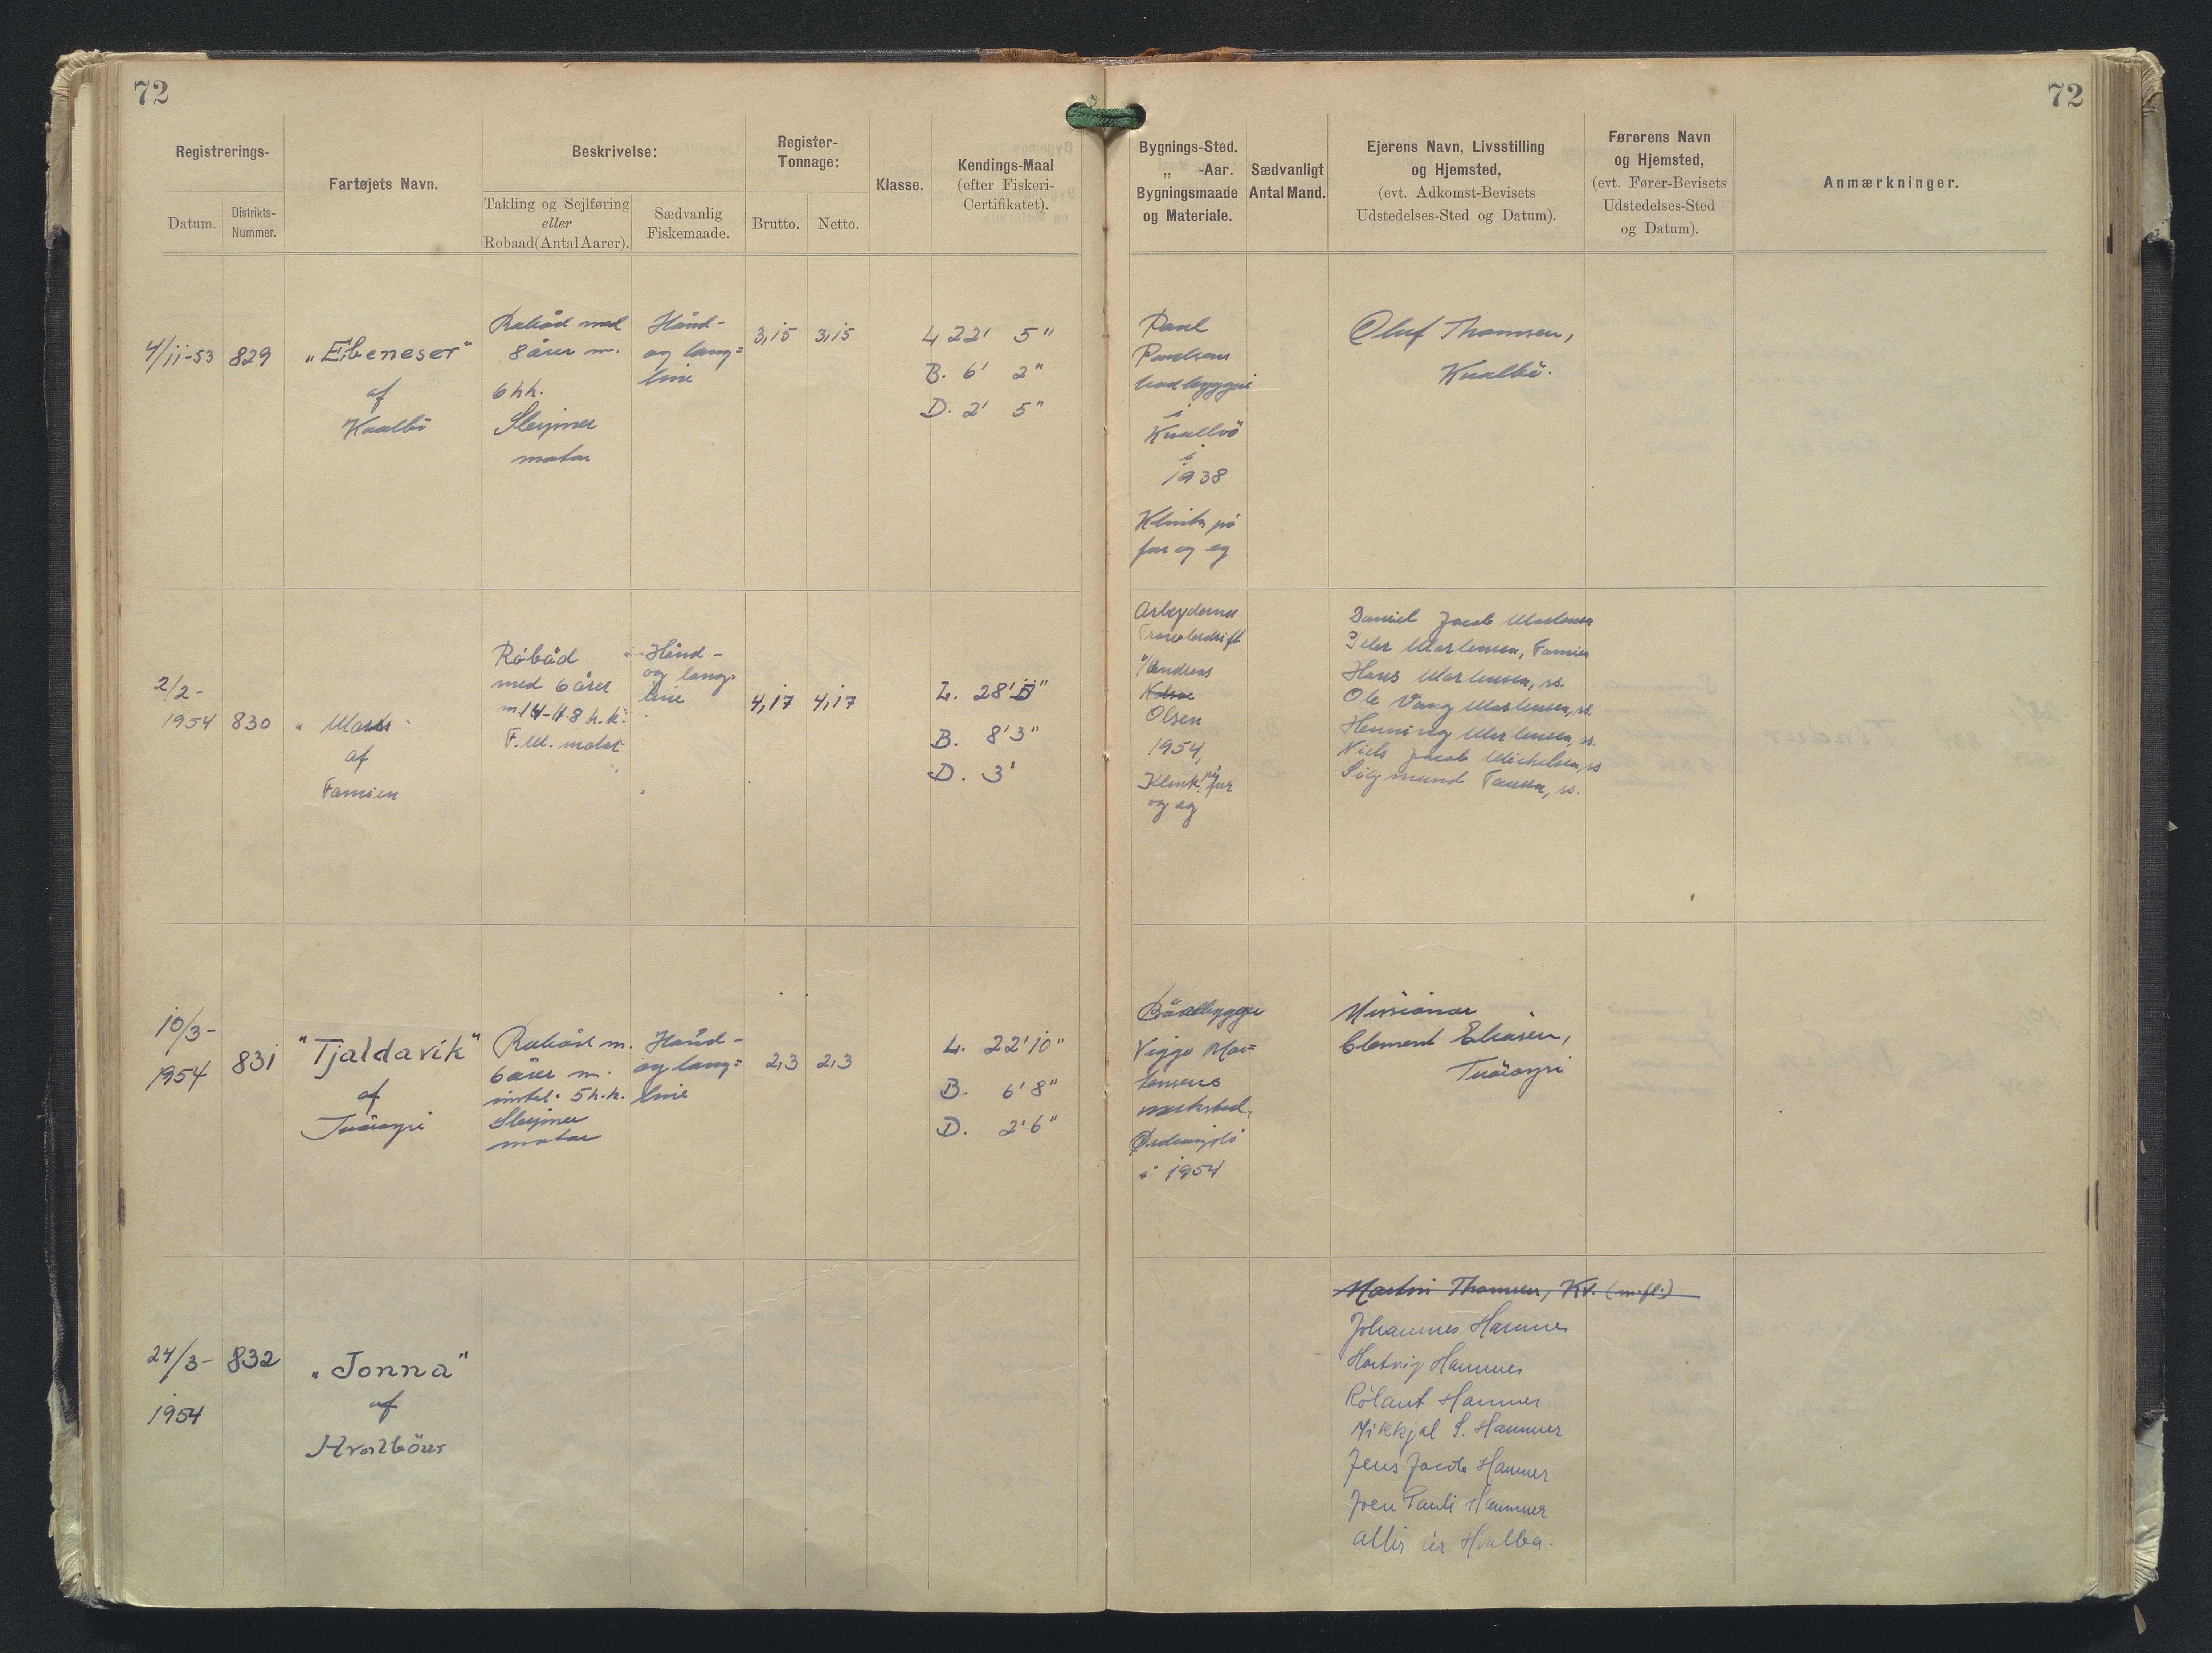 72
72
Registrerings-
Datum.
Distrikts-
Nummer.
Fartøjets Navn.
Beskrivelse:
Takling og Sejlføring
eller
Robaad (Antal Aarer).
Sædvanlig
Fiskemaade.
Register-
Tonnage:
Brutto.
Netto.
Klasse.
Kendings-Maal
(efter Fiskeri-
Certifikatet).
Bygnings-Sted.
„ -Aar.
Bygningsmaade
og Materiale.
Sædvanligt
Antal Mand.
Ejerens Navn, Livsstilling
og Hjemsted,
(evt. Adkomst-Bevisets
Udstedelses-Sted og Datum).
Førerens Navn
og Hjemsted,
(evt. Fører-Bevisets
Udstedelses-Sted
og Datum).
Anmærkninger.
4/11-53
829
„Ebeneser"
af
Kvalbö
Robåd med
8 årer m.
6 hk.
Sleipner
motor
Hånd-
og lang=
line
3,15
3,15
L 22' 5"
B. 6' 2"
D. 2' 5"
Paul
Poulsens
i
i
1938
Klink på
fur og eg
Oluf Thomsen,
Kvalbö.
2/2-
1954
830
af
Famien
Robåd
med 6 årer
F.M. motor
Hånd-
og lang-
line
4,17
4,17
L. 28'
B. 8'3"
D. 3'
Arbejdernes
v/Andreas
Olsen
1954,
Klink på fur
og eg
Daniel Jacob Mortensen
Peter Mortensen, Famien
Hans Mortensen, ss.
Ole Vang Mortensen, ss.
Henning Mortensen, ss.
Niels Jacob Michelsen, ss
Sigmund ss.
10/3-
1954
831
"Tjaldavík"
af
Tvöroyri
Robåd m.
6 årer m.
5 h.k.
Sleipner
motor
Hånd-
og lang=
line
2,3
2,3
L. 22'10"
B. 6'8"
D. 2'6"
Bådebygger
Viggo Mor=
tensens
værksted,
i 1954
Missionær
Clement Eliasen,
Tvöroyri
24/3-
1954
832
„Jonna"
af
Hvalböur
Martin Thomsen, Kv. (m.fl.)
Johannes Hammer
Hartvig Hammer
Rólant Hammer
Mikkjal S. Hammer
Jens Jacob Hammer
Joen Pauli Hammer
allir úr Hvalba.